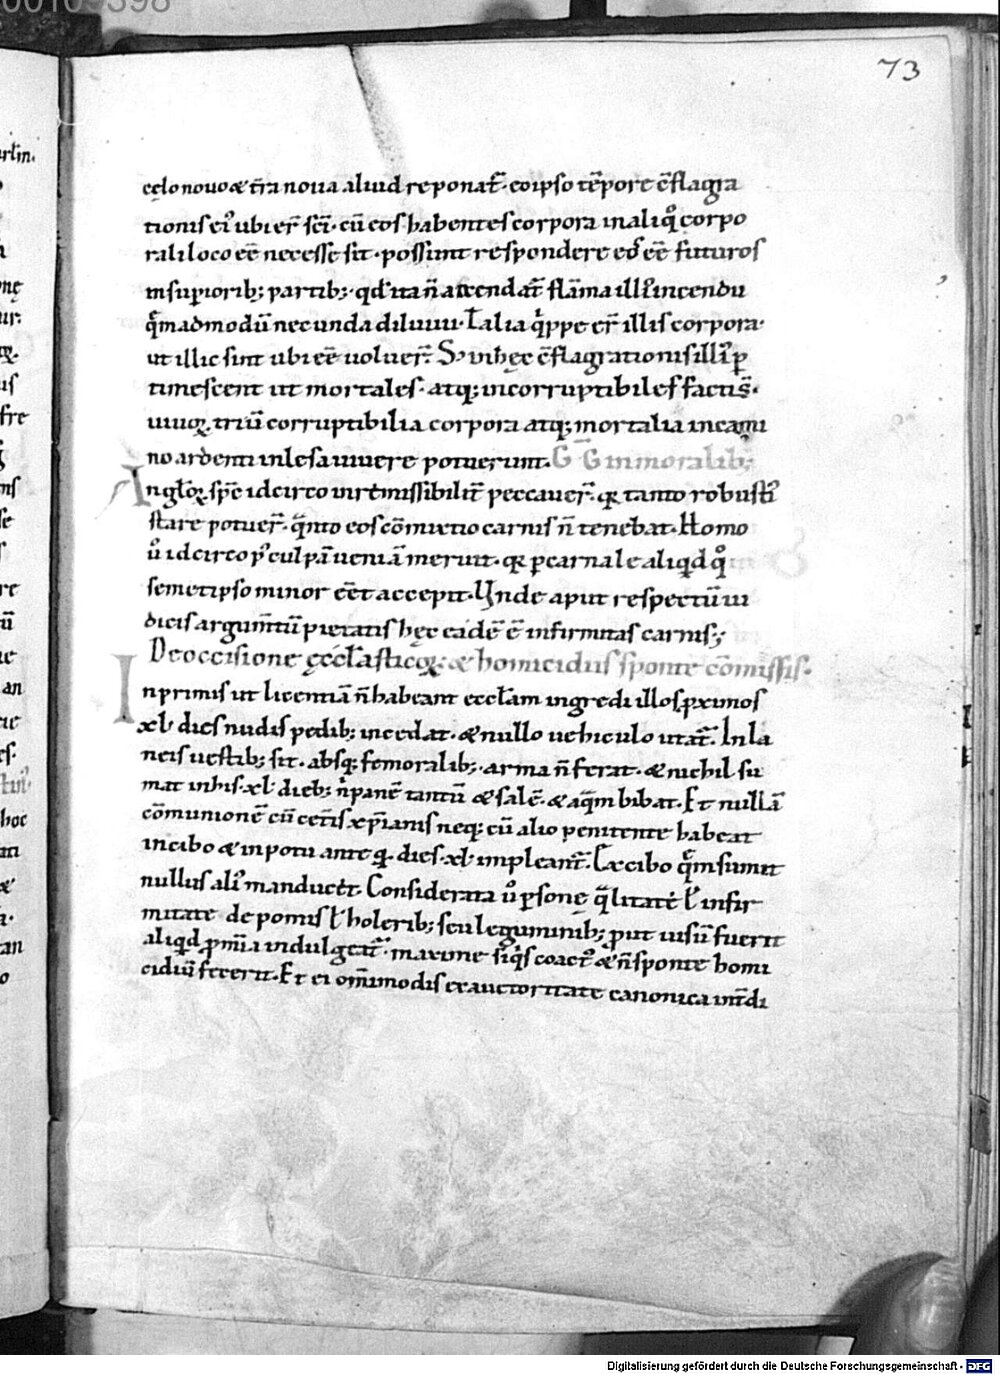 73
cęlo nouo & t̅ra noua aliud reponat̅. eo ipso te̅pore c̅flagra
tionis ei᾽ ubi er̅ sc̅i. cu̅ eos habentes corpora in aliq̊ corpo
rali loco ee̅ necesse sit. possunt respondere eos ee̅ futuros
in supiorib; partib;. qd ita n̅ ascendat̅ fla̅ma illi᾽ incendii
q̅madmodu̅ nec unda diluuii. Talia q̅ppe er̅ illis corpora.
ut illic sint ubi ee̅ uoluer̅. S; in hęc c̅flagrationis illi᾽ p
timescent ut mortales. atq; incorruptibiles facti s̅.
uiuoꝝ. triu̅ corruptibilia corpora atq; mortalia in cami
no ardenti inlesa uiuere potuerunt. G G in moralib;
Angl̅oꝝ sp̅c idcirco inremissibilit̅ peccauer̅. qꝛ tanto robusti᾽
stare potuer̅. q̅nto eos co̅mixtio carnis n̅ tenebat. Homo
u̅ idcirco p᾽ culpa̅ uenia̅ meruit. qꝛ p carnale aliqd q̊
semetipso minor e̅et accepit. Unde aput respectu̅ iu
dicis argum̅tu̅ pietatis hęc eade̅ e̅ infirmitas carnis;
De occisione ęccl̅asticoꝝ. & homicidiis sponte co̅missis.
In primis ut licentia̅ n̅ habeant eccl̅am ingredi illos pximos
xl. dies nudis pedib; incedat. & nullo uehiculo utat̅. In la
neis uestib; sit. absq; femoralib;. arma n̅ ferat. & nichil su
mat in his .xl. dieb; n̅ pane̅ tantu̅ & sale̅. & aq̅m bibat. Et nulla̅
co̅munione̅ cu̅ cet̅is xp̅ianis neq; cu̅ alio penitente habeat
in cibo & in potu ante q̅. dies .xl. impleant̅. Ex cibo q̅m sumit
nullus ali᾽ manducet. Considerata u̅ p̱sonę q̅litate l᾽ infir
mitate de pomis l᾽ holerib; seu leguminib; prout uisu̅ fuerit
aliqd p̅mi̅a indulgeat̅. maxime siq̅s coact᾽ & n̅ sponte homi
cidiu̅ fecerit. Et ei om̅imodis ex auctoritate canonica int̅di
Digitalisierung gefördert durch die Deutsche Forschungsgemeinschaft - DFG